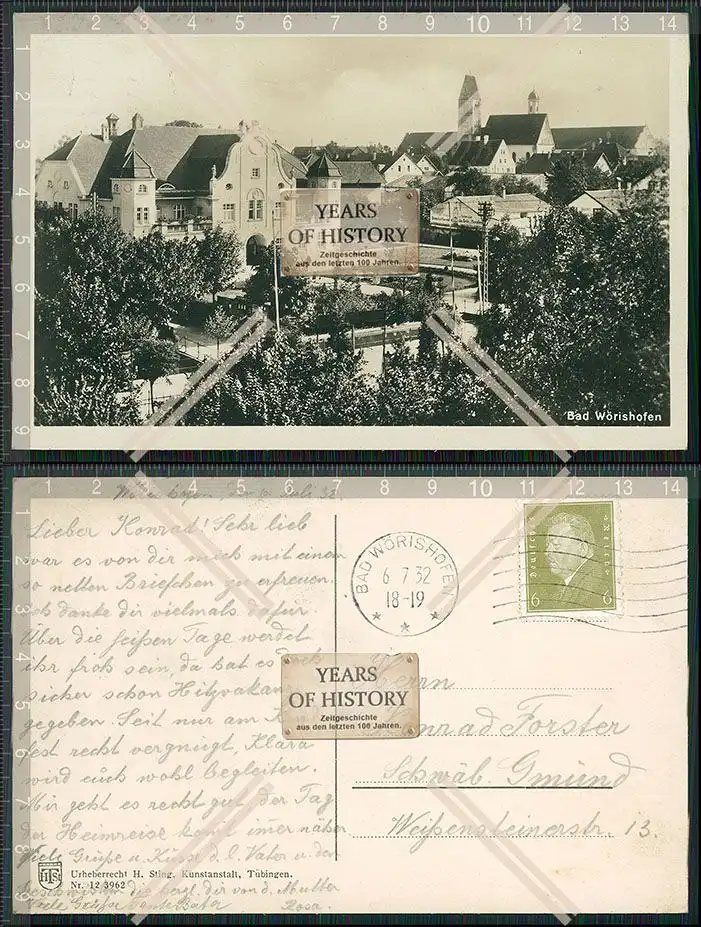 1 2 3 4 5 6 7 8 9 10 11 12 13 14
2
3
4
5
6
7
8
9
YEARS
OF HISTORY
Zeitgeschichte
aus den letzten 100 Jahren.
Bad Wörishofen
1 2 3 4 5 6 7 8 9 10 11 12 13 14
Juli 32.
Lieber Konrad! Sehr lieb
war es von dir mich mit einem
so netten Briefchen zu erfreuen.
Ich danke dir vielmals dafür.
Über die heißen Tage werdet
ihr froh sein, da hat es doch
sicher schon Hitzvakanz
gegeben. Seid nur am
fest recht vergnügt, Klara
wird euch wohl begleiten.
Mir geht es recht gut, der Tag
der Heimreise kommt immer näher
Viele Grüße u. Küsse d. l. Vater u. den
Geschwistern, die herzl. dir von d. Mutter
Viele Grüße Tante Beata Rosa.
Urheberrecht H. Sting, Kunstanstalt, Tübingen.
Nr. 12 3962
BAD WÖRISHOFEN
6.7.32
18-19
Deutsches Reich
6 6
YEARS
OF HISTORY
Zeitgeschichte
aus den letzten 100 Jahren.
Herrn
Konrad Forster
Schwäb. Gmünd
Weißensteinerstr. 13.